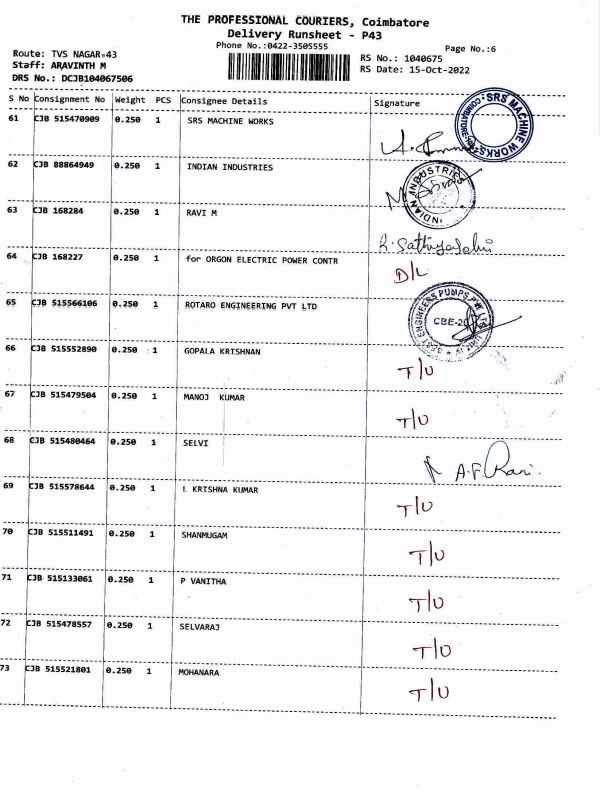 THE PROFESSIONAL COURIERS, Coimbatore
Delivery Runsheet - P43
Phone No.:0422-3505555
Page No.:6
Route: TVS NAGAR-43
RS No.: 1040675
Staff: ARAVINTH M
RS Date: 15-Oct-2022
DRS No.: DCJB104067506
S No Consignment No Weight PCS Consignee Details Signature
61 CJB 515470909 0.250 1 SRS MACHINE WORKS
SRS MACHINE WORKS
62 CJB 88864949 0.250 1 INDIAN INDUSTRIES
INDIAN INDUSTRIES
63 CJB 168284 0.250 1 RAVI M
R. Sathyaseelan
64 CJB 168227 0.250 1 for ORGON ELECTRIC POWER CONTR
D/L
65 CJB 515566106 0.250 1 ROTARO ENGINEERING PVT LTD
BEST ENGINEERS PUMPS PVT LTD
66 CJB 515552890 0.250 1 GOPALA KRISHNAN
T/U
67 CJB 515479504 0.250 1 MANOJ KUMAR
T/U
68 CJB 515480464 0.250 1 SELVI
A.F Rani.
69 CJB 515578644 0.250 1 L KRISHNA KUMAR
T/U
70 CJB 515511491 0.250 1 SHANMUGAM
T/U
71 CJB 515133061 0.250 1 P VANITHA
T/U
72 CJB 515478557 0.250 1 SELVARAJ
T/U
73 CJB 515521801 0.250 1 MOHANARA
T/U